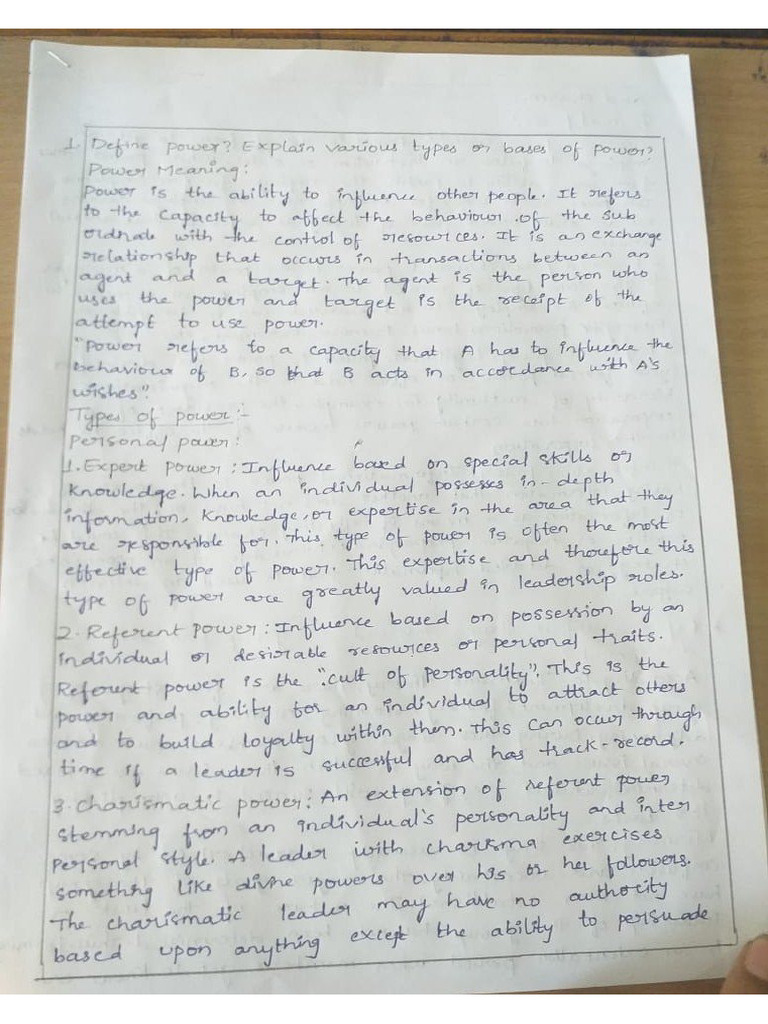 1. Define power? Explain various types or bases of power?
Power Meaning:
Power is the ability to influence other people. It refers
to the capacity to affect the behaviour of the sub
ordnate with the control of resources. It is an exchange
relationship that occurs in transactions between an
agent and a target. The agent is the person who
uses the power and target is the receipt of the
attempt to use power.
"Power refers to a capacity that A has to influence the
behaviour of B, so that B acts in accordance with A's
wishes".
Types of power:-
Personal power:
1. Expert power: Influence based on special skills or
knowledge. When an individual possesses in-depth
information, knowledge, or expertise in the area that they
are responsible for. This type of power is often the most
effective type of power. This expertise and therefore this
type of power are greatly valued in leadership roles.
2. Referent power: Influence based on possession by an
individual or desirable resources or personal traits.
Referent power is the "cult of personality". This is the
power and ability for an individual to attract others
and to build loyalty within them. This can occur through
time if a leader is successful and has track-record.
3. Charismatic power: An extension of referent power
stemming from an individual's personality and inter
personal style. A leader with charisma exercises
something like divine powers over his or her followers.
The charismatic leader may have no authority
based upon anything except the ability to persuade